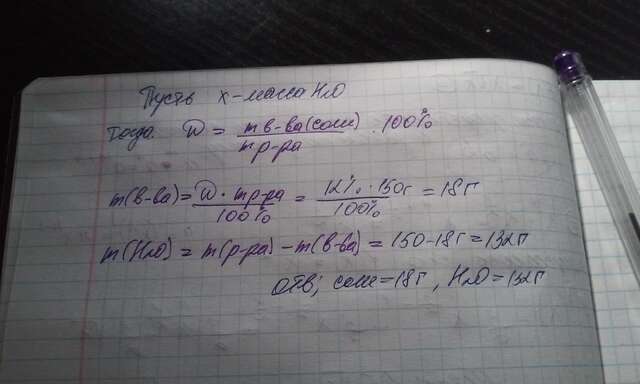 Пусть x-масса H2O
Тогда W = m в-ва(соли) / m р-ра · 100%
m(в-ва) = W · m р-ра / 100% = 12% · 150г / 100% = 18г
m(H2O) = m(р-ра) - m(в-ва) = 150-18г = 132г
отв; соли = 18г, H2O = 132г